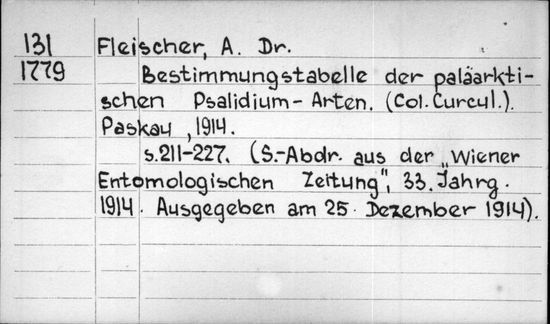 131 Fleischer, A. Dr.
1779 Bestimmungstabelle der paläarkti-
schen Psalidium-Arten. (Col. Curcul.).
Paskau, 1914.
s.211-227. (S.-Abdr. aus der „Wiener
Entomologischen Zeitung", 33. Jahrg.
1914. Ausgegeben am 25. Dezember 1914).